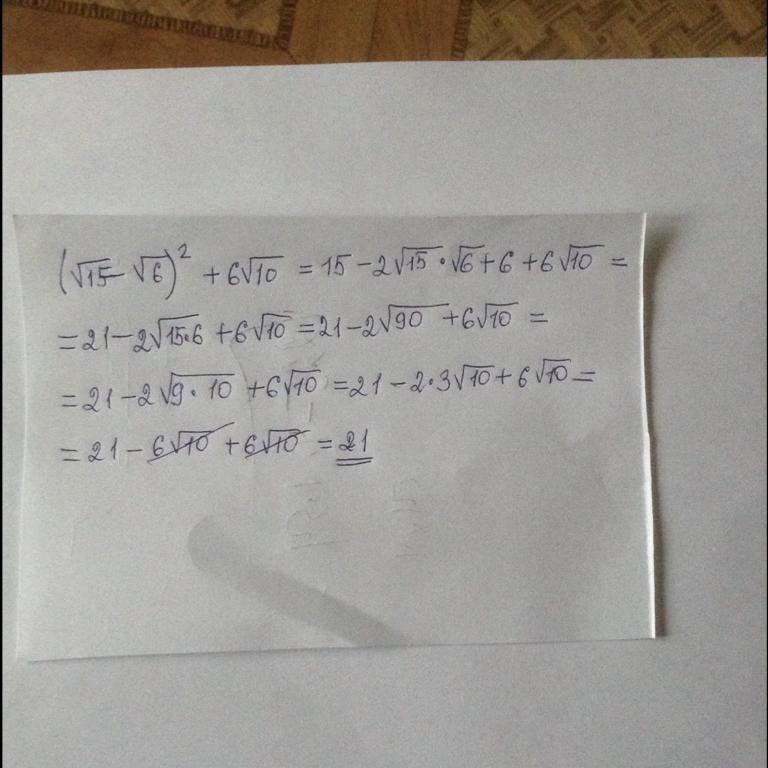 (√15 - √6)² + 6√10 = 15 - 2√15 · √6 + 6 + 6√10 =
= 21 - 2√15·6 + 6√10 = 21 - 2√90 + 6√10 =
= 21 - 2√9·10 + 6√10 = 21 - 2·3√10 + 6√10 =
= 21 - 6√10 + 6√10 = 21